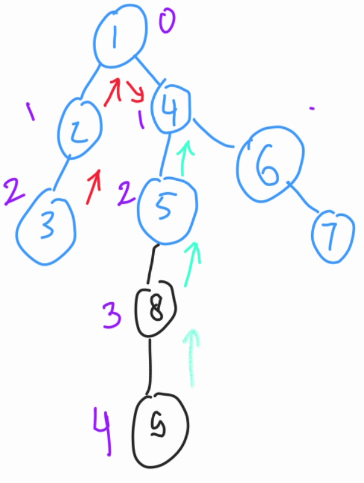 1 0
1 2 1 4
6
2 3 2 5
7
3 8
4 9